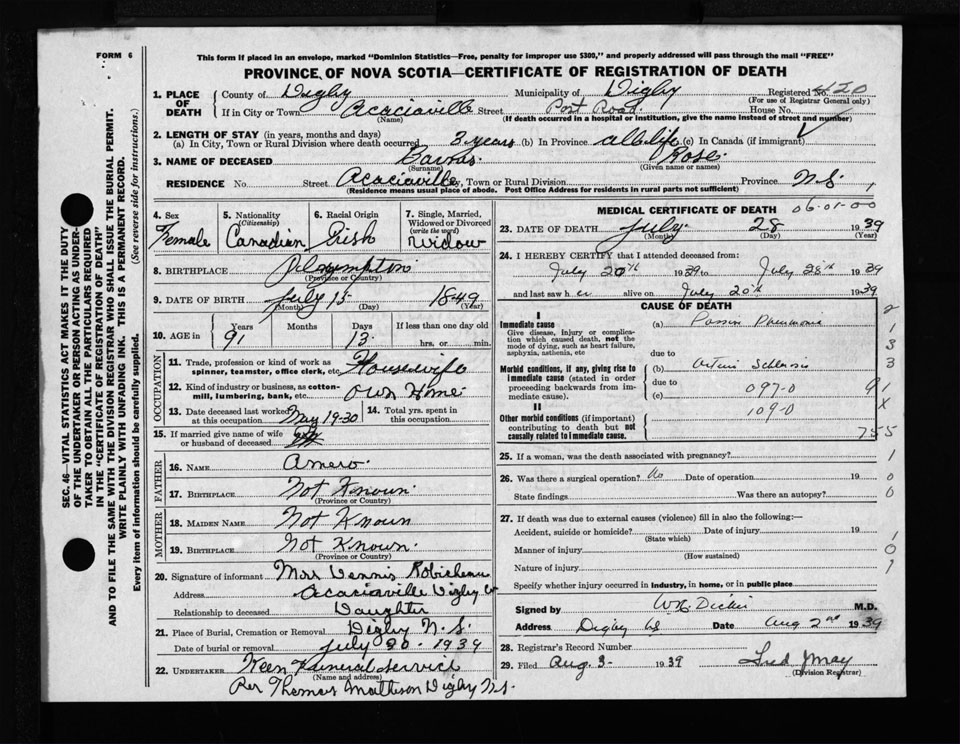 FORM 6
This form if placed in an envelope, marked "Dominion Statistics—Free, penalty for improper use $300," and properly addressed will pass through the mail "FREE"
PROVINCE OF NOVA SCOTIA—CERTIFICATE OF REGISTRATION OF DEATH
1. PLACE OF DEATH
County of Digby Municipality of Digby Registered No. 420
(For use of Registrar General only)
If in City or Town Acaciaville Street Post Road House No.
(Name) (If death occurred in a hospital or institution, give the name instead of street and number)
2. LENGTH OF STAY (in years, months and days)
(a) In City, Town or Rural Division where death occurred 3 years (b) In Province all life (c) In Canada (if immigrant)
3. NAME OF DECEASED Rose
(Surname) (Given name or names)
RESIDENCE No. Street Acaciaville City, Town or Rural Division Province N.S.
(Residence means usual place of abode. Post Office Address for residents in rural parts not sufficient)
4. Sex Female
5. Nationality (Citizenship) Canadian
6. Racial Origin Irish
7. Single, Married, Widowed or Divorced (write the word) Widow
8. BIRTHPLACE Plympton
(Province or Country)
9. DATE OF BIRTH July 15 1849
(Month) (Day) (Year)
10. AGE in Years 91 Months Days 13 If less than one day old hrs. or min.
OCCUPATION
11. Trade, profession or kind of work as spinner, teamster, office clerk, etc. Housewife
12. Kind of industry or business, as cotton-mill, lumbering, bank, etc. Own Home
13. Date deceased last worked at this occupation May 19-30
14. Total yrs. spent in this occupation
15. If married give name of wife or husband of deceased
FATHER
16. NAME Amero
17. BIRTHPLACE Not Known
(Province or Country)
MOTHER
18. MAIDEN NAME Not Known
19. BIRTHPLACE Not Known
(Province or Country)
20. Signature of informant Mrs Dennis Robicheau
Address Acaciaville Digby Co
Relationship to deceased Daughter
21. Place of Burial, Cremation or Removal Digby N.S.
Date of burial or removal July 30 1939
22. UNDERTAKER Keen Funeral Service
(Name and address)
Per Thomas Mattison Digby N.S.
MEDICAL CERTIFICATE OF DEATH 06-01-00
23. DATE OF DEATH July 28 1939
(Month) (Day) (Year)
24. I HEREBY CERTIFY that I attended deceased from:
July 20th 1939 to July 28th 1939
and last saw her alive on July 20th 1939
CAUSE OF DEATH
I
Immediate cause (a) Pneumonia
Give disease, injury or complication which caused death, not the mode of dying, such as heart failure, asphyxia, asthenia, etc
due to
Morbid conditions, if any, giving rise to immediate cause (stated in order proceeding backwards from immediate cause). (b)
due to 097-0
(c) 109-0
II
Other morbid conditions (if important) contributing to death but not causally related to immediate cause.
755
25. If a woman, was the death associated with pregnancy?
26. Was there a surgical operation? No Date of operation 19
State findings Was there an autopsy?
27. If death was due to external causes (violence) fill in also the following:—
Accident, suicide or homicide? Date of injury 19
(State which)
Manner of injury
(How sustained)
Nature of injury
Specify whether injury occurred in industry, in home, or in public place
Signed by M.D.
Address Digby NS Date Aug 2nd 1939
28. Registrar's Record Number
29. Filed Aug 3 1939 Fred J May
(Division Registrar)
SEC. 46—VITAL STATISTICS ACT MAKES IT THE DUTY
OF THE UNDERTAKER OR PERSON ACTING AS UNDERTAKER TO OBTAIN ALL THE PARTICULARS REQUIRED
IN THE "CERTIFICATE OF REGISTRATION OF DEATH"
AND TO FILE THE SAME WITH THE DIVISION REGISTRAR WHO SHALL ISSUE THE BURIAL PERMIT.
WRITE PLAINLY WITH UNFADING INK. THIS IS A PERMANENT RECORD.
Every item of information should be carefully supplied. (See reverse side for instructions.)